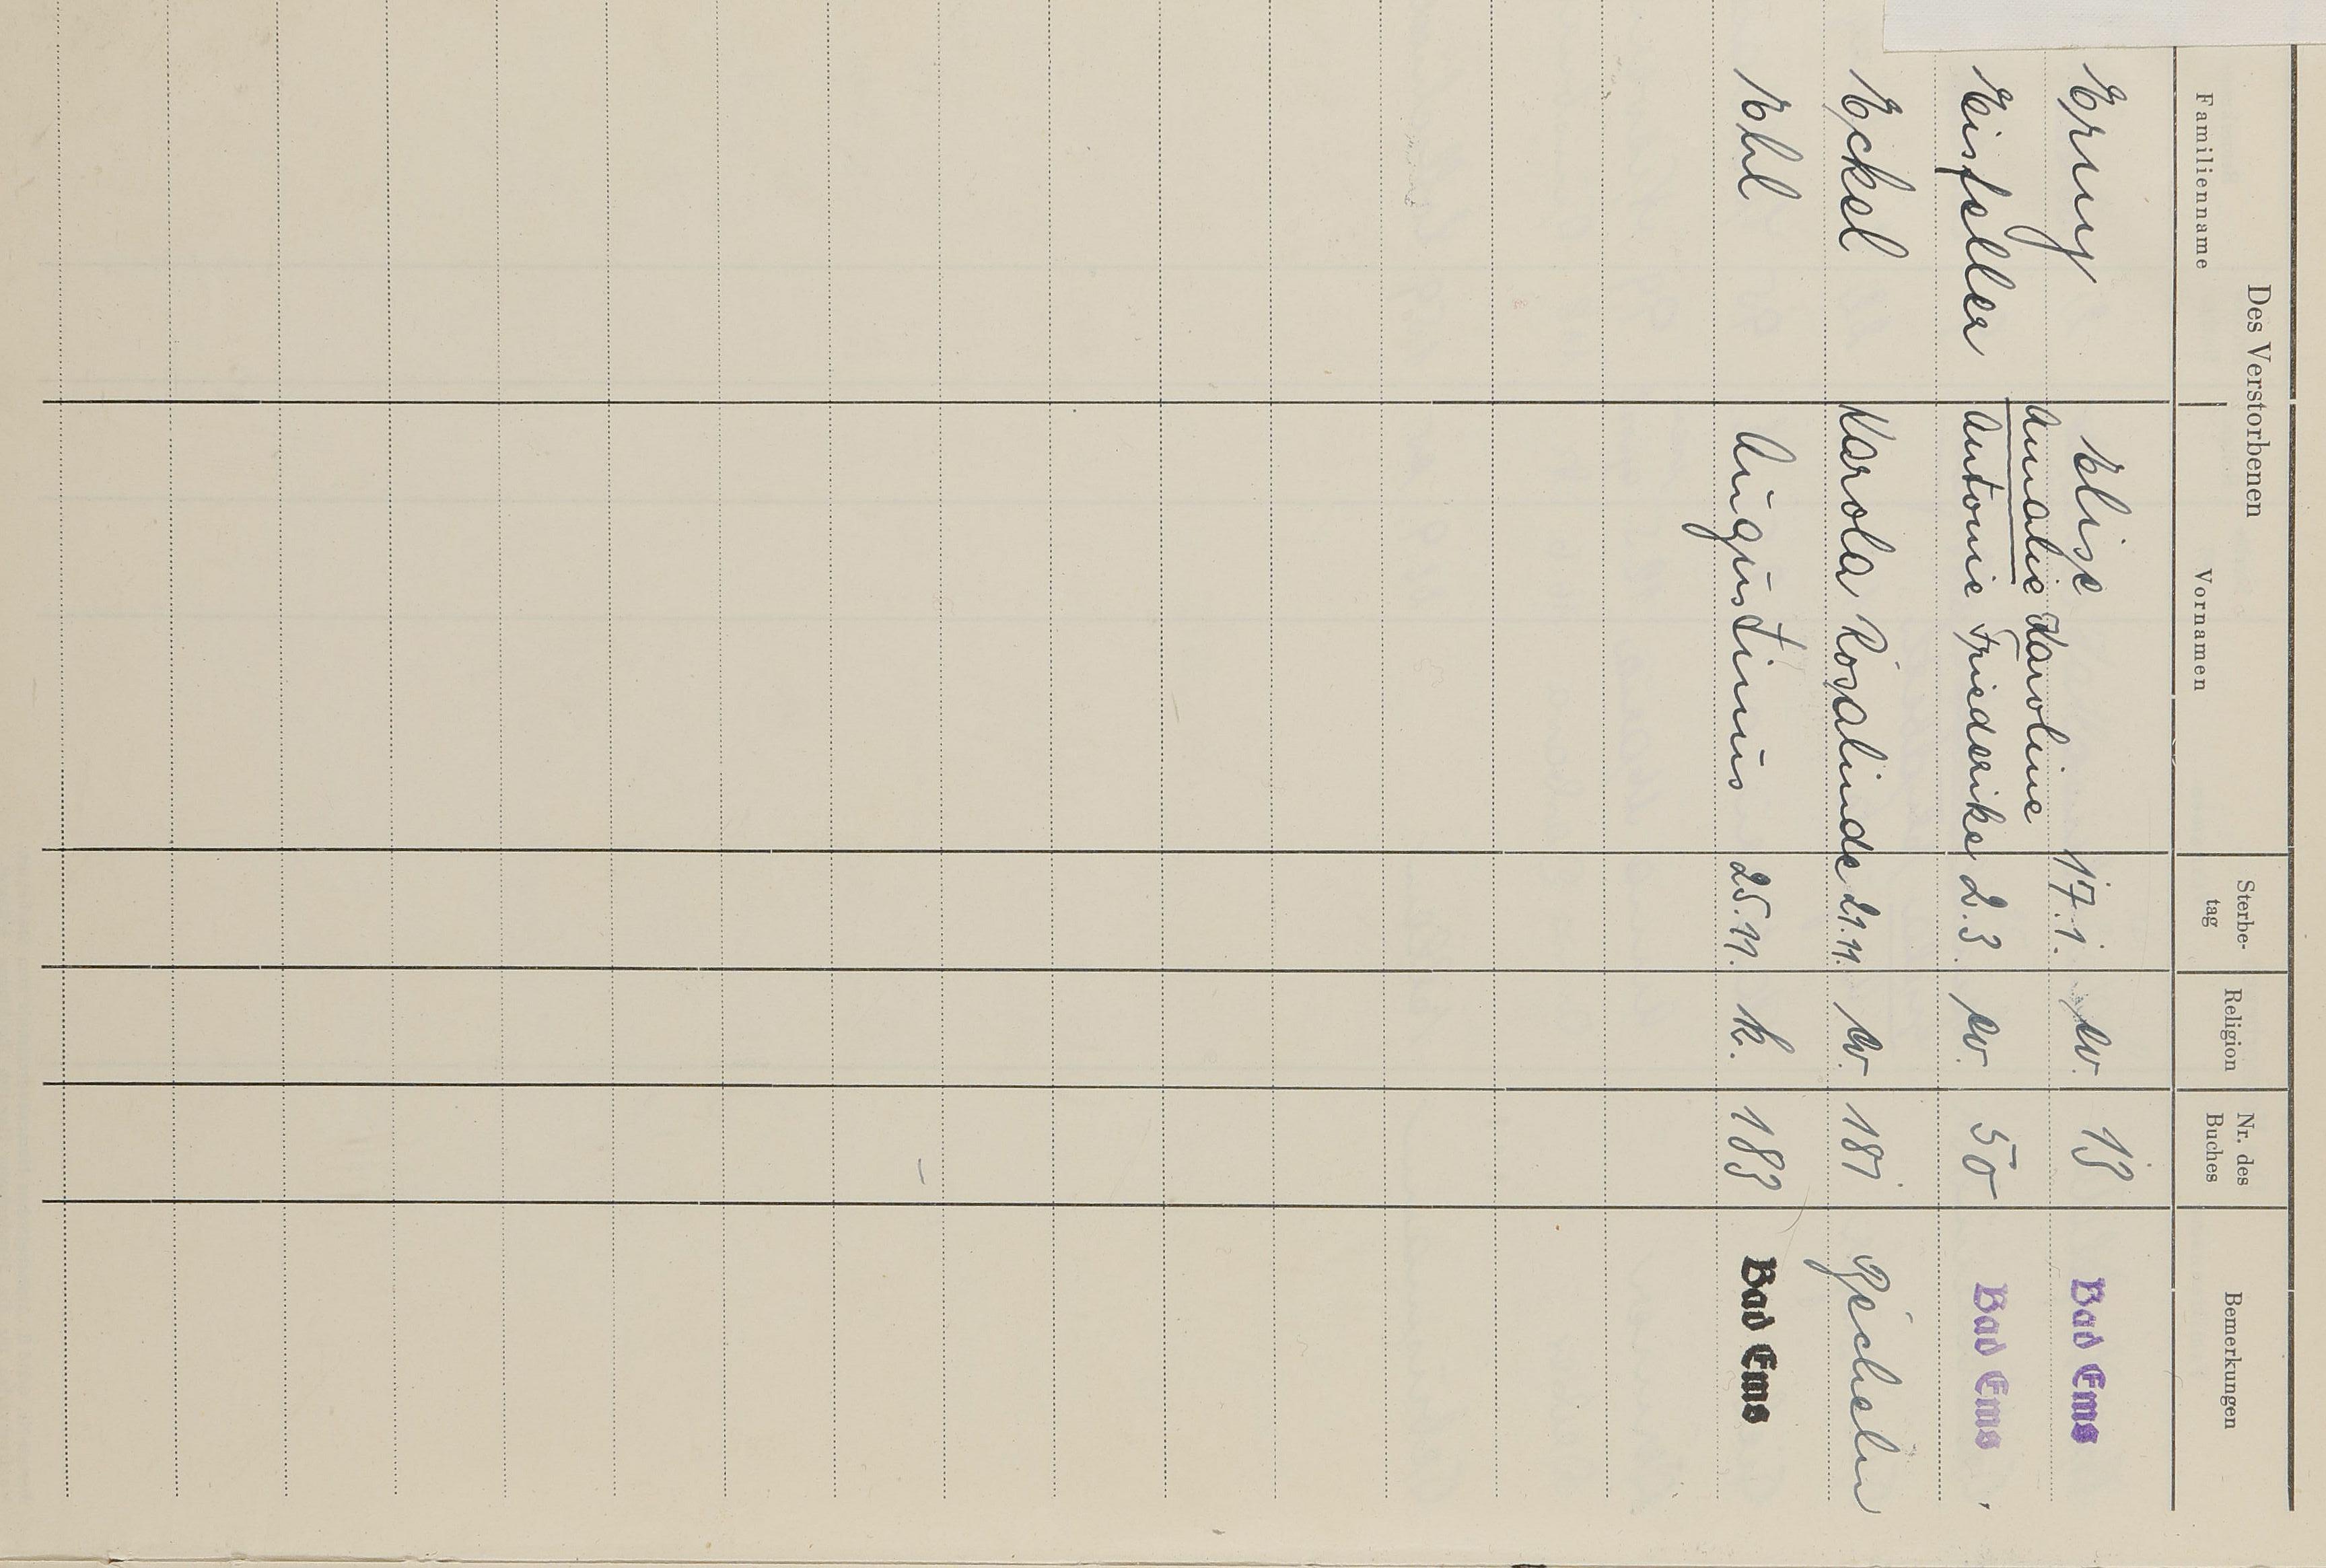 Des Verstorbenen
Familienname Vornamen Sterbe-tag Religion Nr. des Buches Bemerkungen
Erny Elise 17.1. ev. 13 Bad Ems
Amalie Karoline
Eisfeller Antonie Friederike 2.3. ev. 50 Bad Ems
Eckel Karola Rosalinde 21.11. ev. 181
Ebel Augustinus 25.11. k. 183 Bad Ems